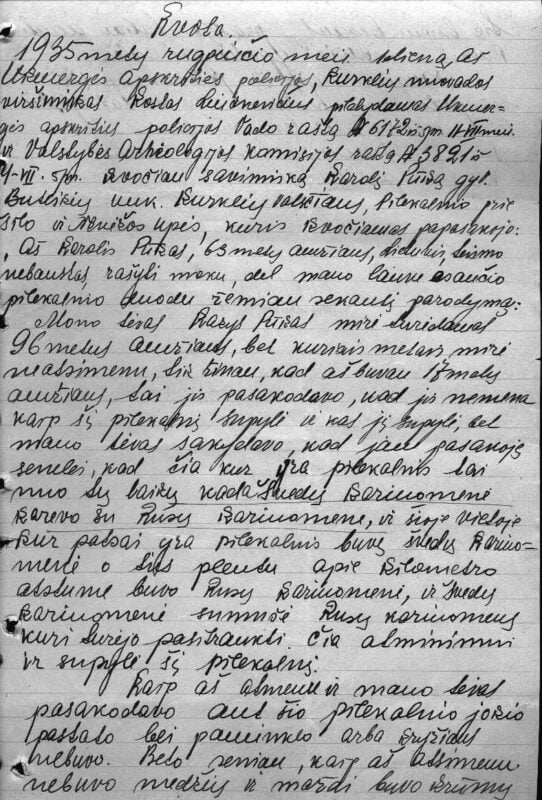 Kvota.
1935 metų rugpiučio mėn. dieną, Aš
Ukmergės apskrities policijos, Kurklių nuovados
viršininkas Kostas pildydamas Ukmer-
gės apskrities policijos Vado raštą № 6172 š.m.
ir Valstybės Archeologijos Komisijos raštą № 3821 š
VII. š.m. kvočiau savininką Karolį Pušką gyv.
vnk. Kurklių valsčiaus, Pilekalnio prie
ir upės, kuris kvočiamas papasakojo:
„Aš Karolis Puškas, 63 metų amžiaus, lietuvis, teismo
nebaustas rašyti moku, dėl mano lauke esančio
pilekalnio duodu žemiau sekantį parodymą:
Mano tėvas Kazys Puškas mirė turėdamas
96 metus amžiaus, bet kuriais metais mirė
neatsimenu, tik žinau, kad aš buvau 17 metų
amžiaus, tai jis pasakodavo, kad jis nemena
kaip šį pilekalnį supylė ir kas jį supylė, bet
mano tėvas sakydavo, kad jam pasakoję
seneliai, kad čia kur yra pilekalnis tai
nuo tų laikų kada Švedų Kariuomenė
karevo su Rusų Kariuomene, ir šioje vietoje
kur patsai yra pilekalnis buvę švedų Kariuo-
menė o ties plentu apie kilometro
atstume buvo Rusų Kariuomenė, ir Švedų
Kariuomenė sumušė Rusų kariuomenę
kuri turėjo pasitraukti čia atminimui
ir supylė šį pilekalnį.
Kaip aš atmenu ir mano tėvas
pasakodavo ant šio pilekalnio jokio
pastato bei paminklo arba kryžiaus
nebuvo. Beto seniau, kaip aš atsimenu
nebuvo medžių ir maži buvo krūmų